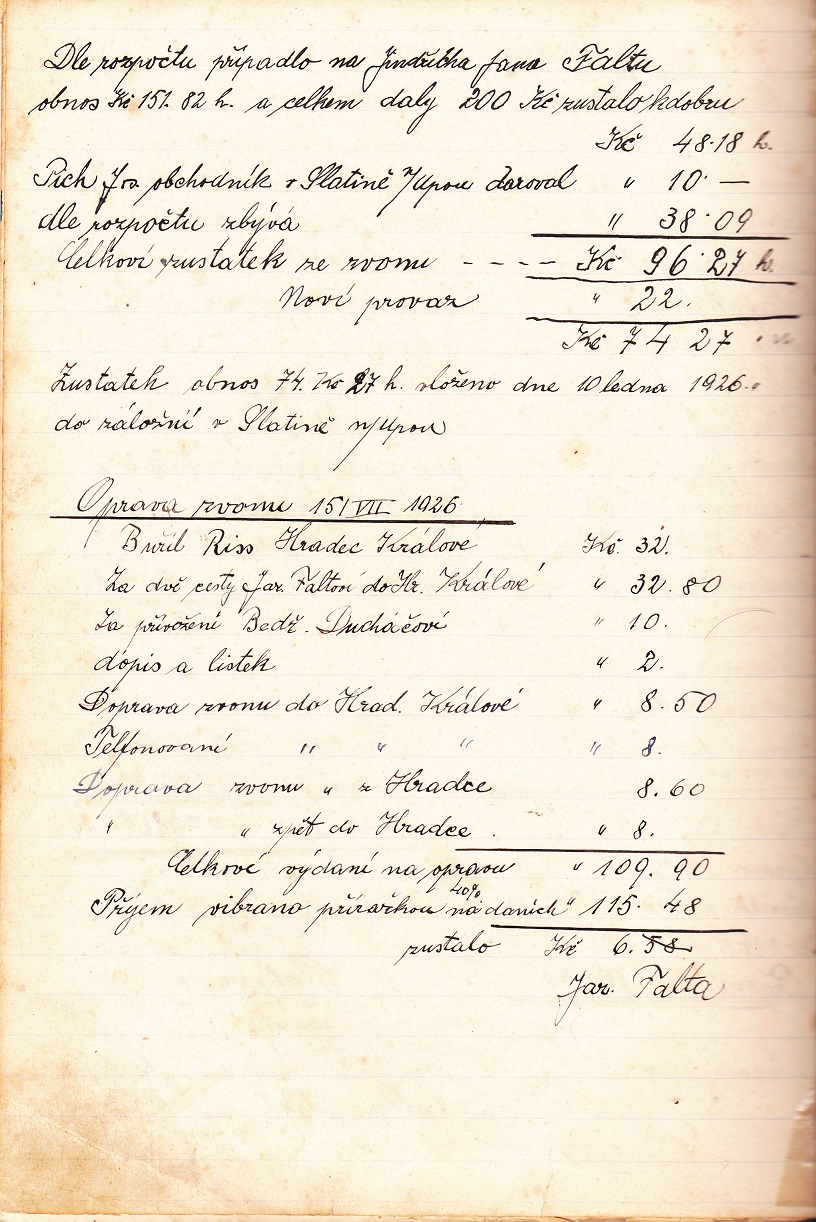 Dle rozpočtu připadlo na Jindřicha Jana Faltu
obnos Kč 151.82 h. a celkem daly 200 Kč zustalo kdobru
Kč 48.18 h.
Pich Jos obchodník v Slatině n/Upou daroval " 10. —
dle rozpočtu zbývá " 38.09
Celkoví zustatek ze zvonu - - - - Kč 96.27 h.
Noví provaz " 22.
Kč 74 27
Zustatek obnos 74. Kč 27 h. vloženo dne 10 ledna 1926.
do záložní v Slatině n/Upou
Oprava zvonu 15/VII 1926.
Buřil Riss Hradec Králové Kč. 32.
Za dvě cesty Jar. Faltoví do Hr. Králové " 32.80
Za přivožení Bedř. Ducháčoví " 10.
dopis a listek " 2.
Doprava zvonu do Hrad. Králové " 8.50
Telfonovaní " " " " 8.
Doprava zvonu " z Hradce 8.60
" " zpět do Hradce . " 8.
Celkové výdaní na opravu " 109.90
Příjem vibrano přirařkou 40% na daních " 115.48
zustalo Kč 6.58
Jar. Falta